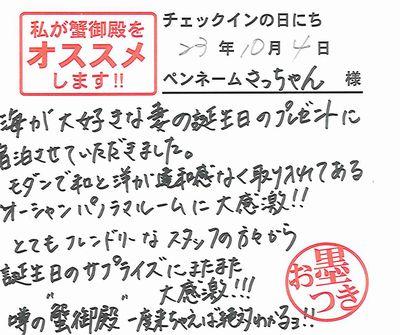 私が蟹御殿を
オススメ
します!!
チェックインの日にち
23年10月4日
ペンネーム さっちゃん 様
海が大好きな妻の誕生日のプレゼントに
宿泊させていただきました。
モダンで和と洋が違和感なく取り入れてある
オーシャンパノラマルームに大感激!!
とてもフレンドリーなスタッフの方々から
誕生日のサプライズにまたまた
大感激!!!
噂の"蟹御殿"一度来ちゃえば絶対わかるヨ!!
お墨
つき